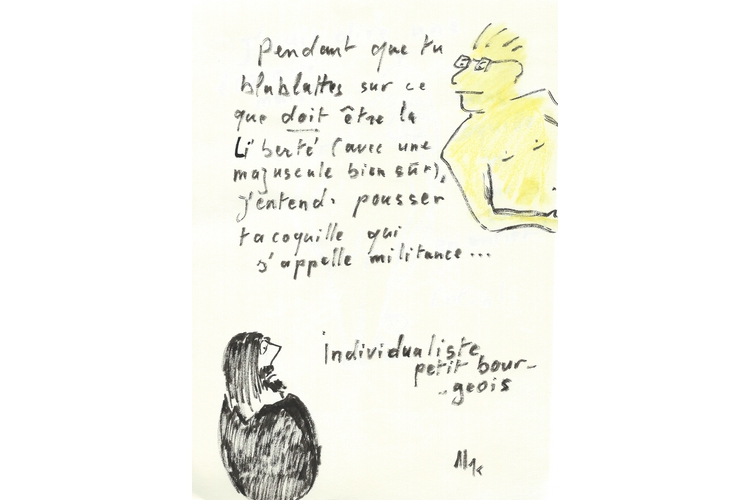 Pendant que tu
blablattes sur ce
que doit être la
Liberté (avec une
majuscule bien sûr),
j'entends pousser
ta coquille qui
s'appelle militance...
individualiste
petit bour-
-geois